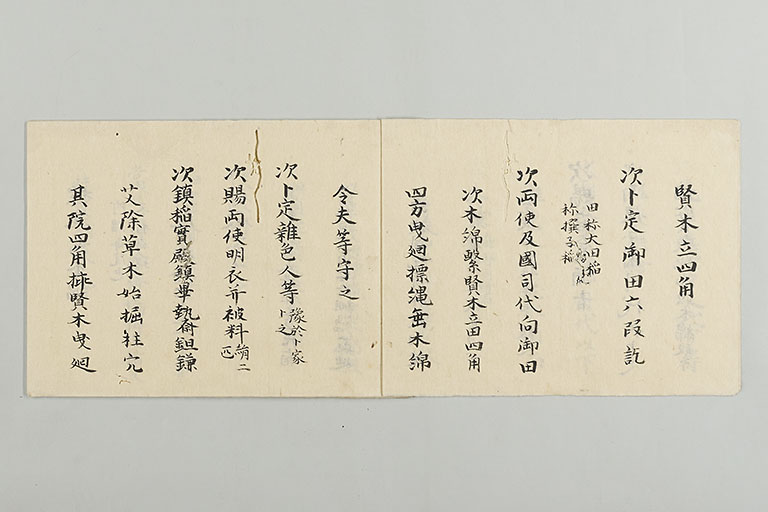 賢木立四角
次卜定御田六段訖
田称大田稲
称撰子稲
次両使及國司代向御田
次木綿繫賢木立田四角
四方曳廻標縄垂木綿
令夫等守之
次卜定雑色人等豫於卜家卜之
次賜両使明衣并被料絹二匹
次鎮稲實殿鎮畢執斎鉏鎌
艾除草木始掘柱穴
其院四角揷賢木曳廻